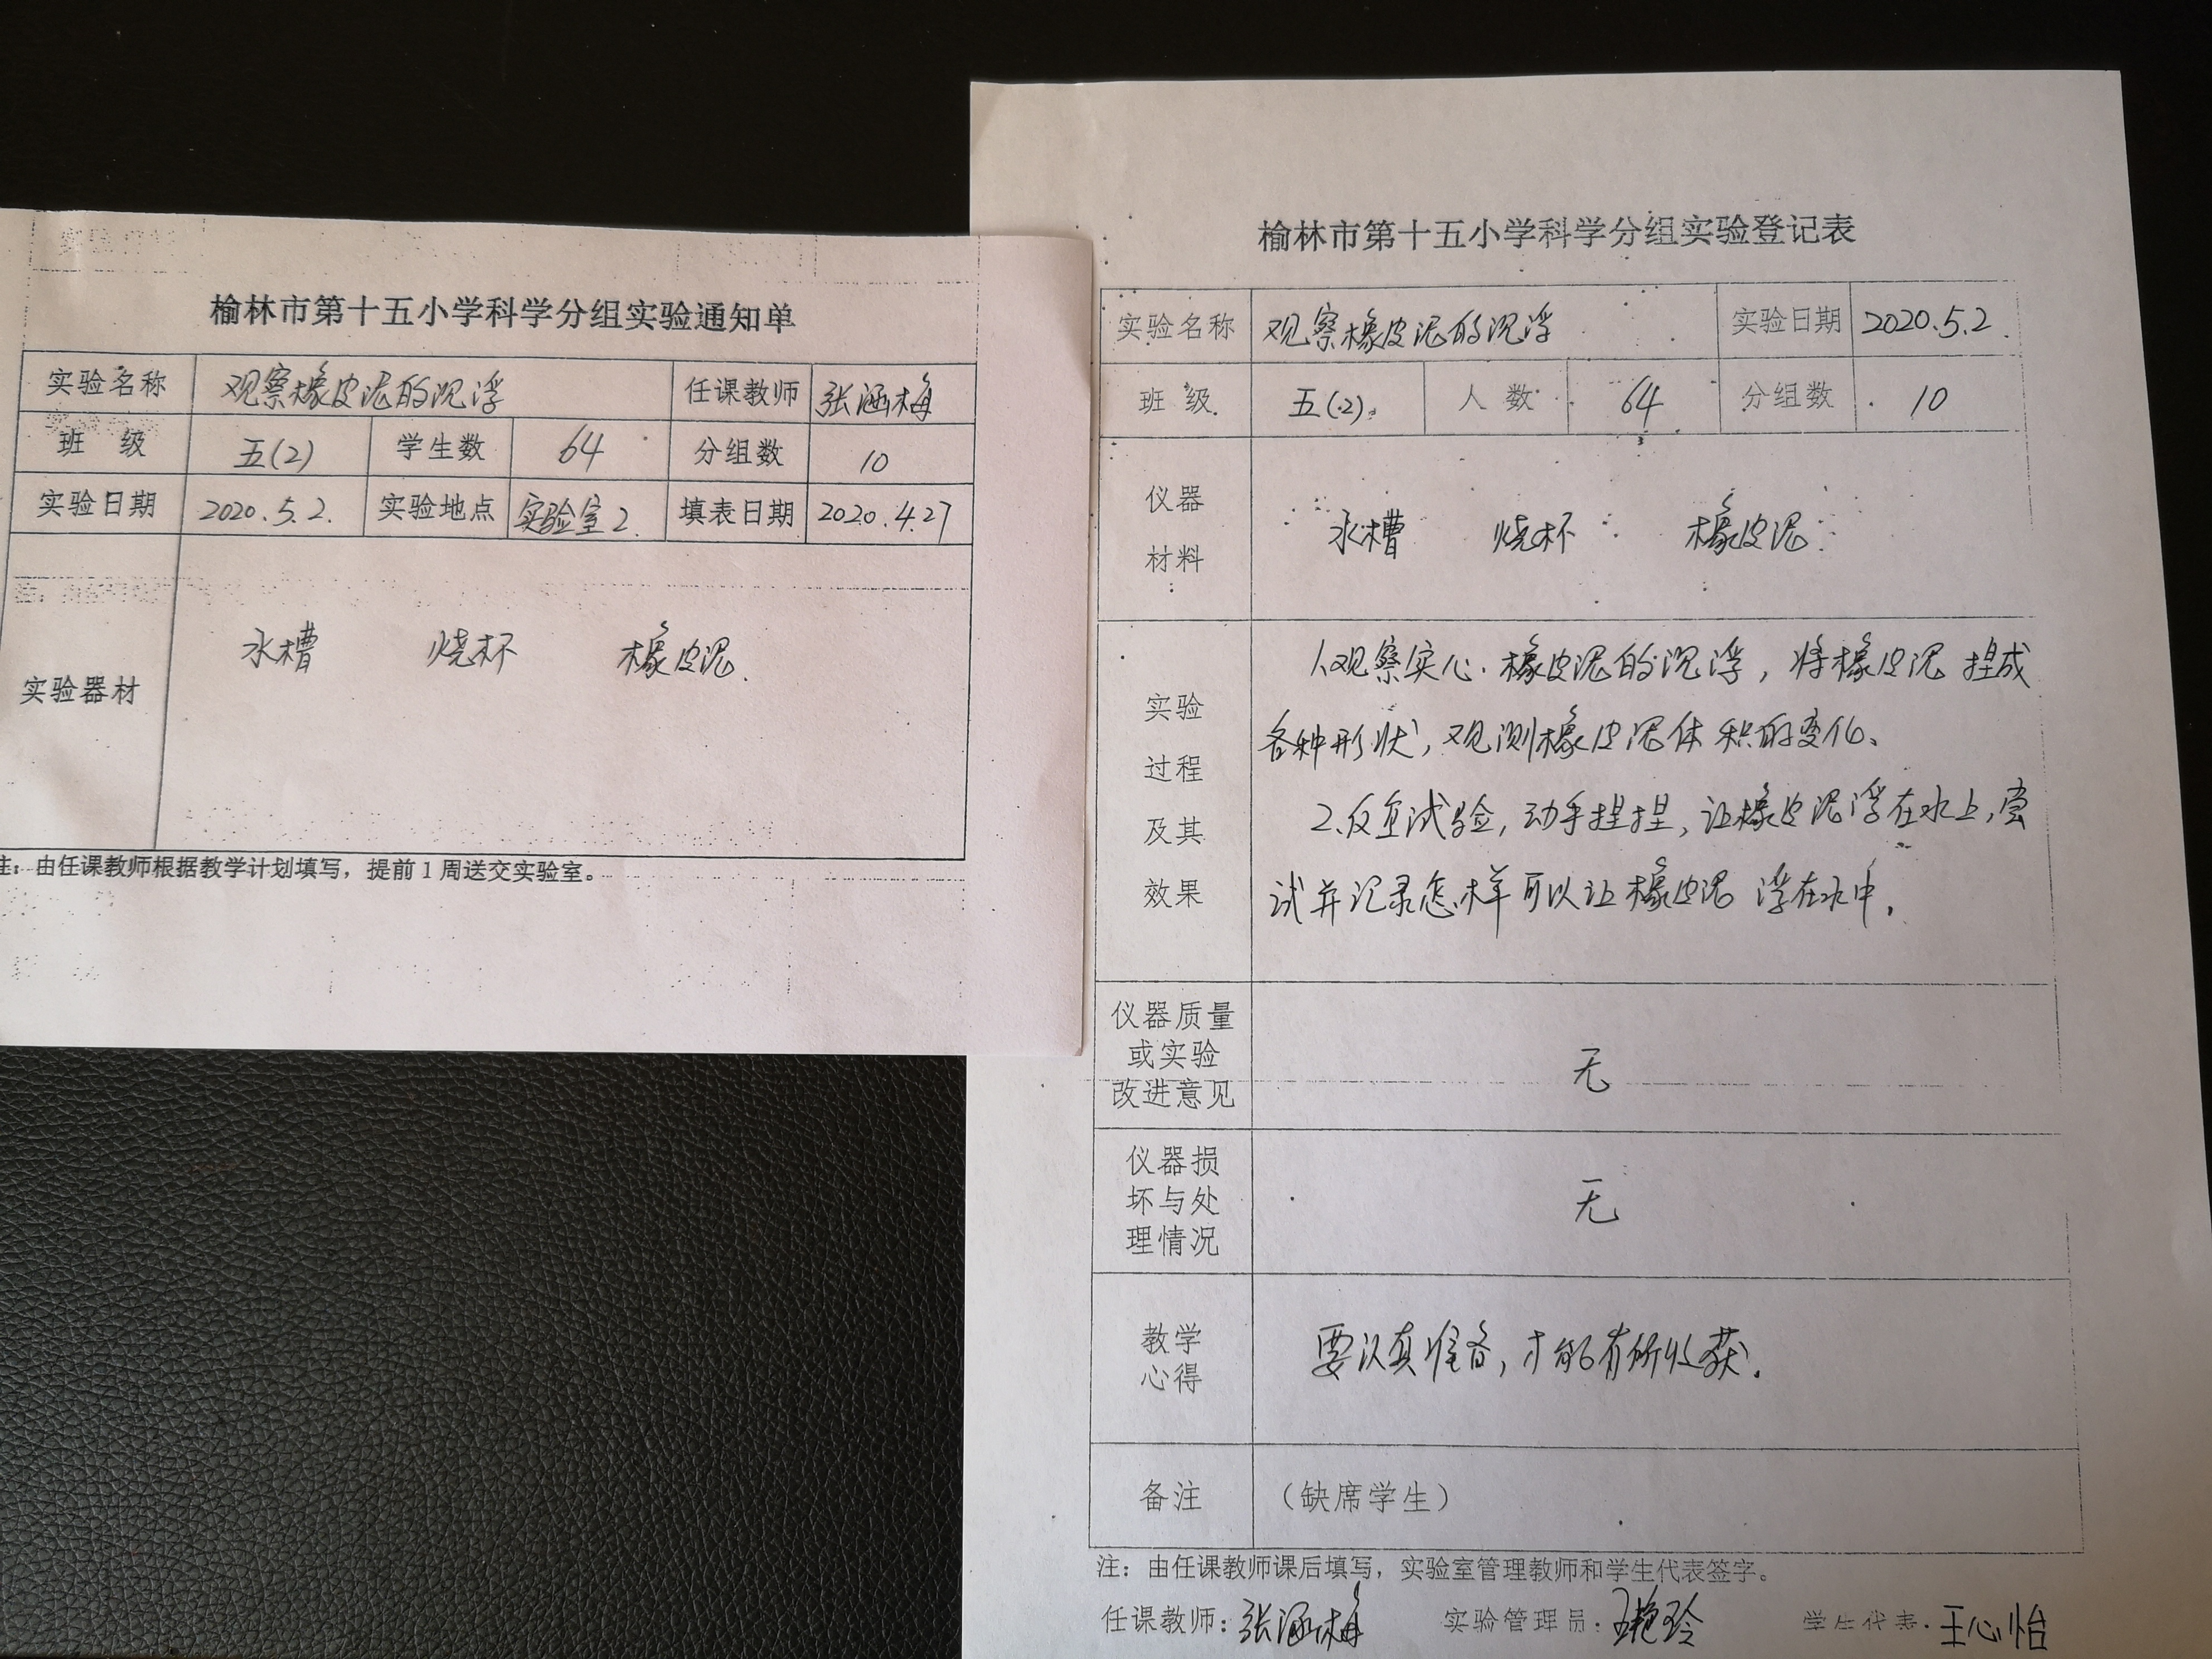 榆林市第十五小学科学分组实验通知单
实验名称 观察橡皮泥的沉浮 任课教师 张涵梅
班 级 五(2) 学生数 64 分组数 10
实验日期 2020.5.2. 实验地点 实验室2. 填表日期 2020.4.27
实验器材 水槽 烧杯 橡皮泥.
注:由任课教师根据教学计划填写,提前1周送交实验室。
榆林市第十五小学科学分组实验登记表
实验名称 观察橡皮泥的沉浮 实验日期 2020.5.2.
班 级 五(2) 人 数 64 分组数 10
仪器
材料
水槽 烧杯 橡皮泥
实验
过程
及其
效果
1.观察实心橡皮泥的沉浮,将橡皮泥捏成
各种形状,观测橡皮泥体积的变化、
2.反复试验,动手捏捏,让橡皮泥浮在水上,尝
试并记录怎样可以让橡皮泥浮在水中.
仪器质量
或实验
改进意见
无
仪器损
坏与处
理情况
无
教学
心得
要认真准备,才能有所收获.
备注 (缺席学生)
注:由任课教师课后填写,实验室管理教师和学生代表签字。
任课教师:张涵梅 实验管理员:王艳玲 学生代表:王心怡